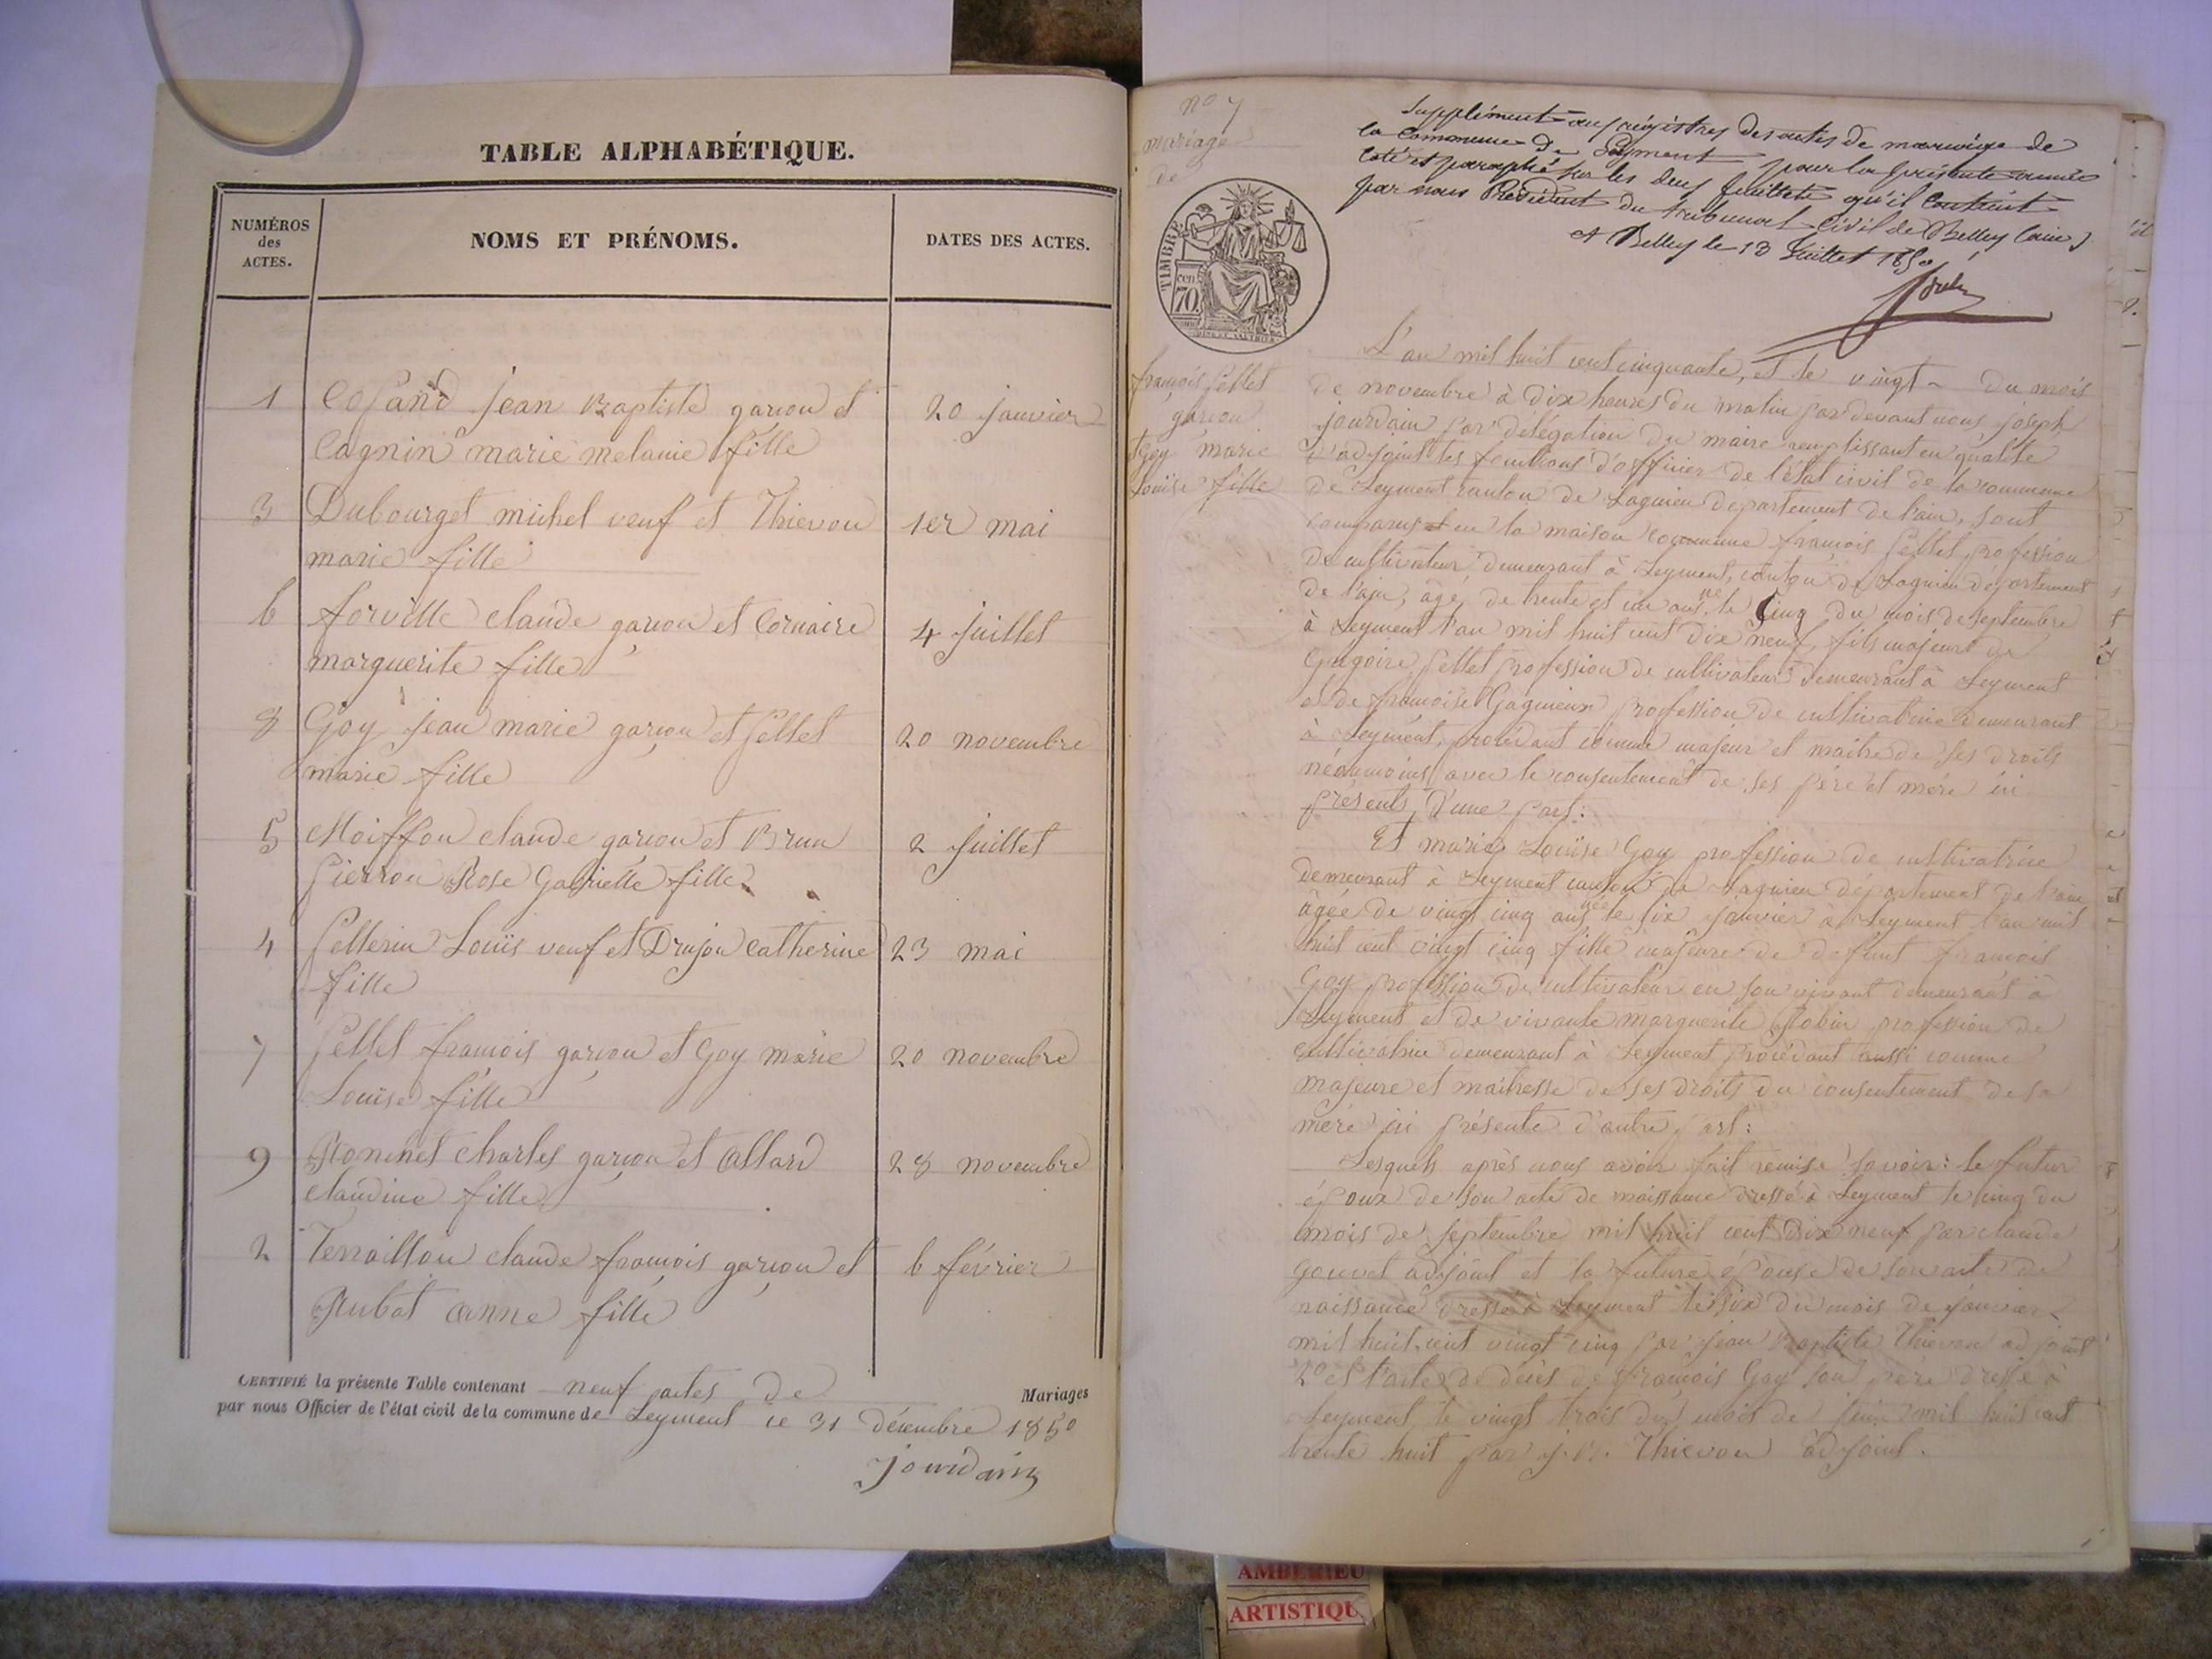 TABLE ALPHABÉTIQUE.
NUMÉROS
des
ACTES.
NOMS ET PRÉNOMS.
DATES DES ACTES.
1 Cosand jean Baptiste garcon et 20 janvier
Cagnin marie melanie fille
3 Dubourget michel veuf et Thievon 1er mai
marie fille
6 forville claude garcon et Cornaire 4 juillet
marguerite fille
8 Goy jean marie garçon et Pellet 20 novembre
marie fille
5 Moiffon claude garcon et Brun 2 juillet
Pierron Rose Gabrielle fille
4 Pellerin Louis veuf et Drujon Catherine 23 mai
fille
7 Pellet francois garçon et Goy marie 20 novembre
Louise fille
9 Roninet charles garçon et Allard 28 novembre
claudine fille
2 Terraillon claude françois garçon et 6 février
Rubat anne fille
CERTIFIÉ la présente Table contenant neuf actes de Mariages
par nous Officier de l'état civil de la commune de Leyment ce 31 décembre 1850
jourdain
no 7
mariage
de
TIMBRE
70
françois Pellet
garcon
et Goy marie
Louise fille
Supplément aux régistres des actes de mariage de
la Commune de Leyment pour la présente année
Coté et paraphé sur les deux feuillets qu'il Contient
par nous Président du tribunal Civil de Belley (ain)
A Belley le 13 Juillet 1850
L'an mil huit cent cinquante, et le vingt du mois
de novembre à dix heures du matin par devant nous joseph
jourdain par délégation du maire remplissant en qualité
d'adjoint les fonctions d'officier de l'état civil de la commune
de Leyment canton de Lagnieu departement de l'ain, sont
comparus en la maison commune françois Pellet profession
de cultivateur demeurant à Leyment, canton de Lagnieu département
de l'ain, âgé de trente et un ans né le Cinq du mois de septembre
à Leyment l'an mil huit cent dix neuf, fils majeur de
Grégoire Pellet profession de cultivateur demeurant à Leyment
et de françoise Gagnieux profession de cultivatrice demeurant
à Leyment, procédant comme majeur et maître de ses droits
néanmoins avec le consentement de ses père et mère ici
présents, d'une part:
Et marie Louise Goy profession de cultivatrice
demeurant à Leyment canton de Lagnieu département de l'ain
âgée de vingt cinq ans née le six janvier à Leyment l'an mil
huit cent vingt cinq fille majeure de defunt françois
Goy profession de cultivateur en son vivant demeurant à
Leyment et de vivante marguerite Robin profession de
cultivatrice demeurant à Leyment procédant aussi comme
majeure et maitresse de ses droits du consentement de sa
mère ici présente d'autre part:
Lesquels après nous avoir fait remise savoir: le futur
époux de son acte de naissance dressé à Leyment le cinq du
mois de septembre mil huit cent dix neuf par claude
Gouvet adjoint et la future épouse de son acte de
naissance dressé à Leyment le six du mois de janvier
mil huit cent vingt cinq par jean Baptiste Thievon adjoint
2o et l'acte de décès de françois Goy son père dressé à
Leyment le vingt trois du mois de juin mil huit cent
trente huit par j. B. Thievon adjoint.
AMBERIEU
ARTISTIQU